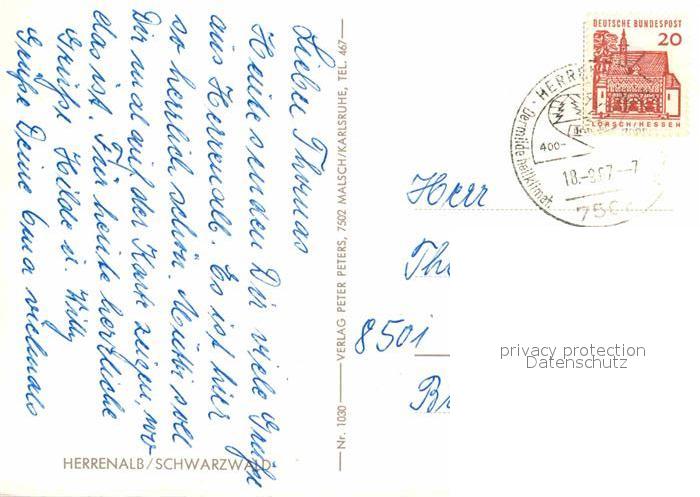 Lieber Thomas
Heute senden Dir viele Grüße
aus Herrenalb. Es ist hier
so herrlich schön. Mutti soll
Dir mal auf der Karte zeigen, wo
das ist. Für heute herzliche
Grüße Hilde u. Willy
Grüße Deine Oma vielmals
HERRENALB/SCHWARZWALD
Nr. 1030 VERLAG PETER PETERS, 7502 MALSCH/KARLSRUHE, TEL. 467
DEUTSCHE BUNDESPOST
20
LORSCH/HESSEN
HERRE
Der milde heilklimat.
400-
18.-9.67.--7
Herr
Th
8501
privacy protection
Datenschutz